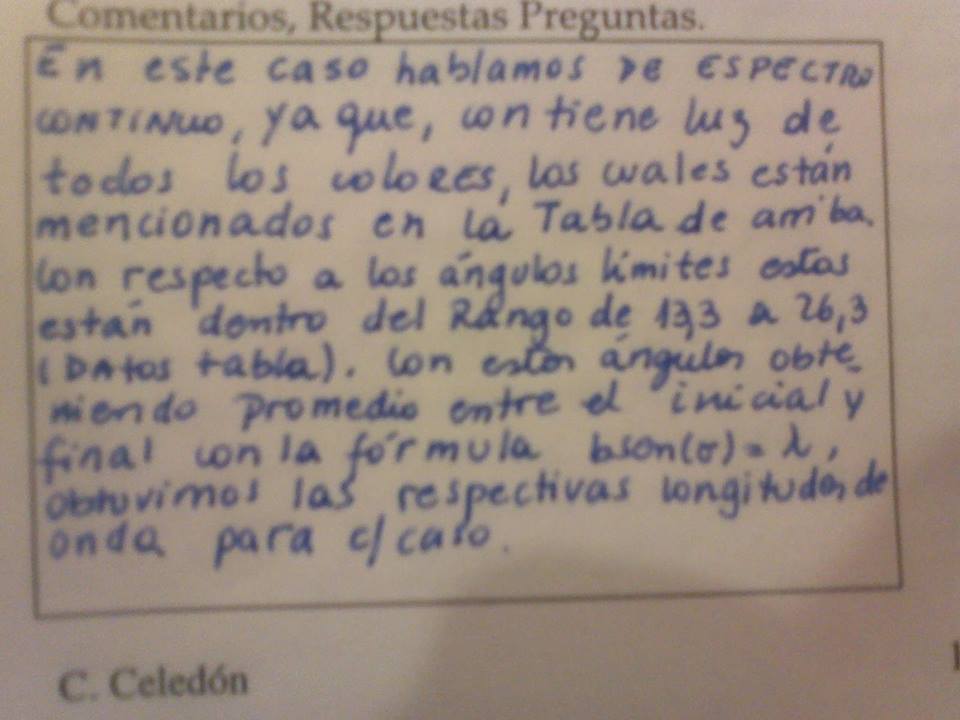 Comentarios, Respuestas Preguntas.
En este caso hablamos DE ESPECTRO
CONTINUO, ya que, contiene luz de
todos los colores, los cuales están
mencionados en la Tabla de arriba.
Con respecto a los ángulos límites estos
están dentro del Rango de 13,3 a 26,3
(DATOS tabla). Con estos ángulos obte-
niendo promedio entre el inicial y
final con la fórmula bsen(σ) = λ,
obtuvimos las respectivas longitudes de
onda para c/ caso.
C. Celedón
1